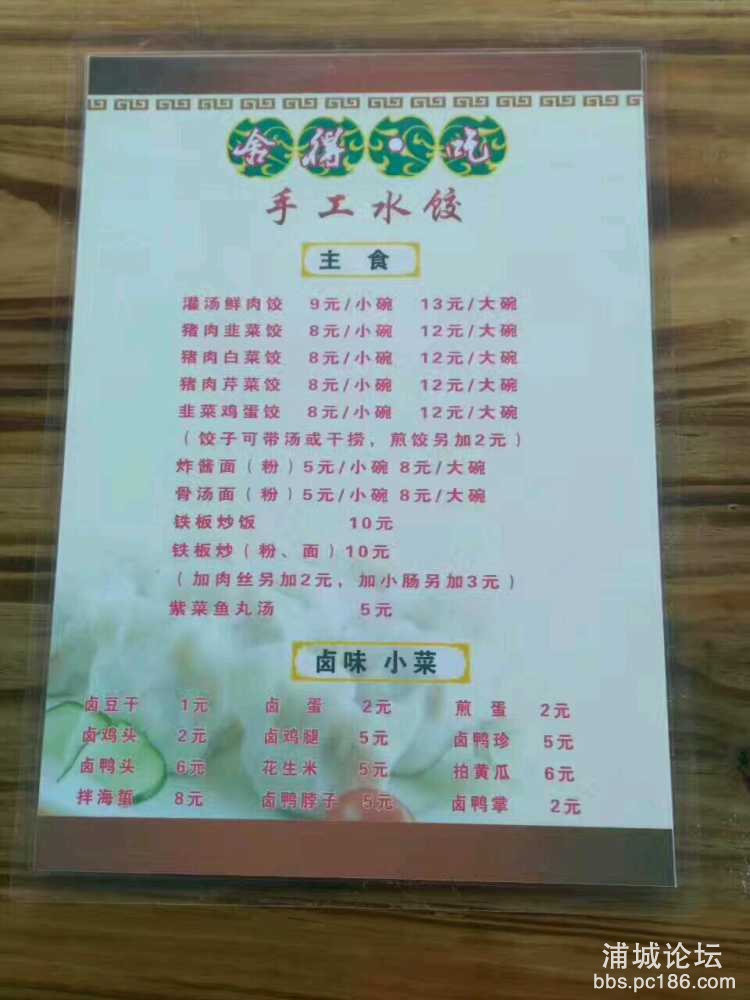 舍得·吃
手工水饺
主 食
灌汤鲜肉饺 9元/小碗 13元/大碗
猪肉韭菜饺 8元/小碗 12元/大碗
猪肉白菜饺 8元/小碗 12元/大碗
猪肉芹菜饺 8元/小碗 12元/大碗
韭菜鸡蛋饺 8元/小碗 12元/大碗
(饺子可带汤或干捞,煎饺另加2元)
炸酱面(粉)5元/小碗 8元/大碗
骨汤面(粉)5元/小碗 8元/大碗
铁板炒饭 10元
铁板炒(粉、面)10元
(加肉丝另加2元,加小肠另加3元)
紫菜鱼丸汤 5元
卤味 小菜
卤豆干 1元 卤 蛋 2元 煎 蛋 2元
卤鸡头 2元 卤鸡腿 5元 卤鸭珍 5元
卤鸭头 6元 花生米 5元 拍黄瓜 6元
拌海蜇 8元 卤鸭脖子 5元 卤鸭掌 2元
浦城论坛
bbs.pc186.com